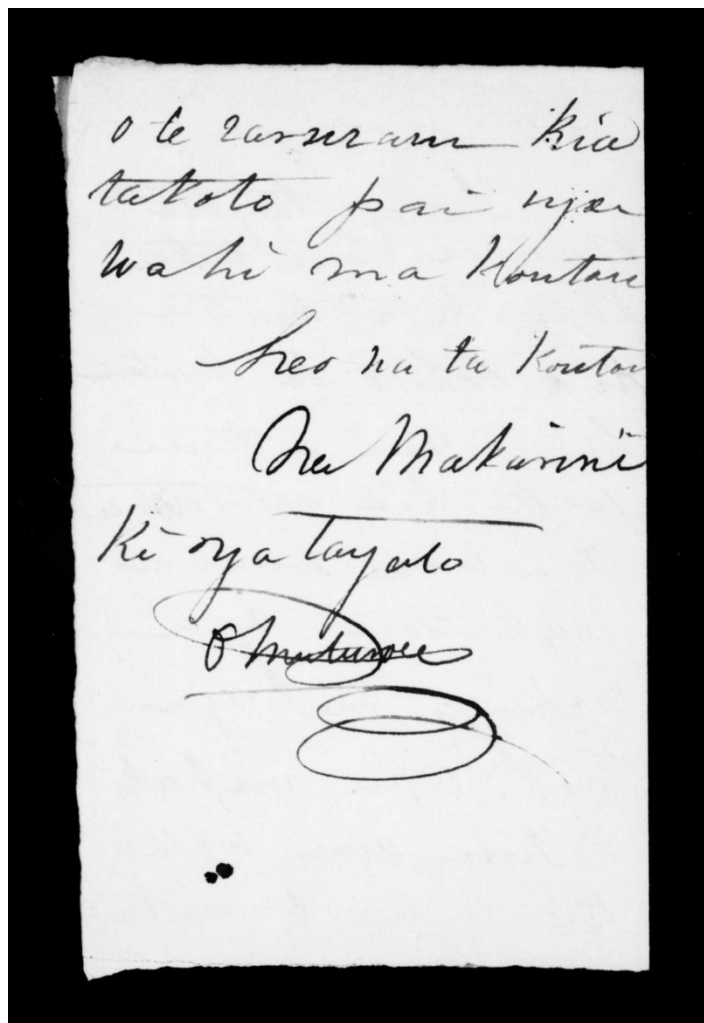 o te raruraru kia
takoto pai nga
wahi ma koutou
heo na ta koutou
Na Makarini
Ki nga tangata
O